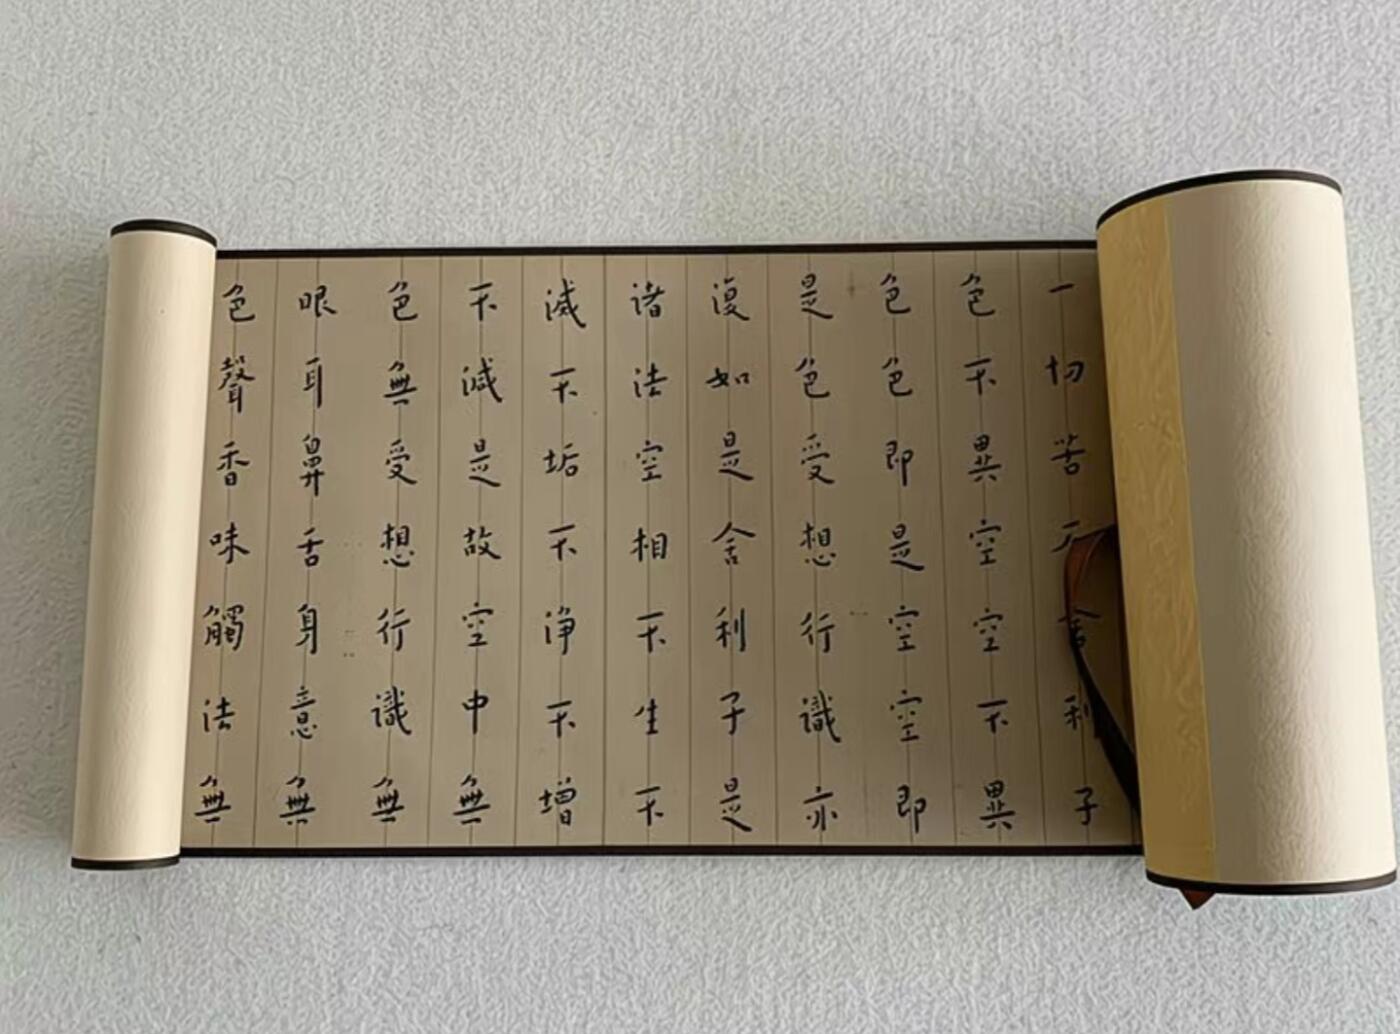 一切苦厄舍利子
色不異空空不異
色色即是空空即
是色受想行識亦
復如是舍利子是
諸法空相不生不
滅不垢不淨不增
不減是故空中無
色無受想行識無
眼耳鼻舌身意無
色聲香味觸法無